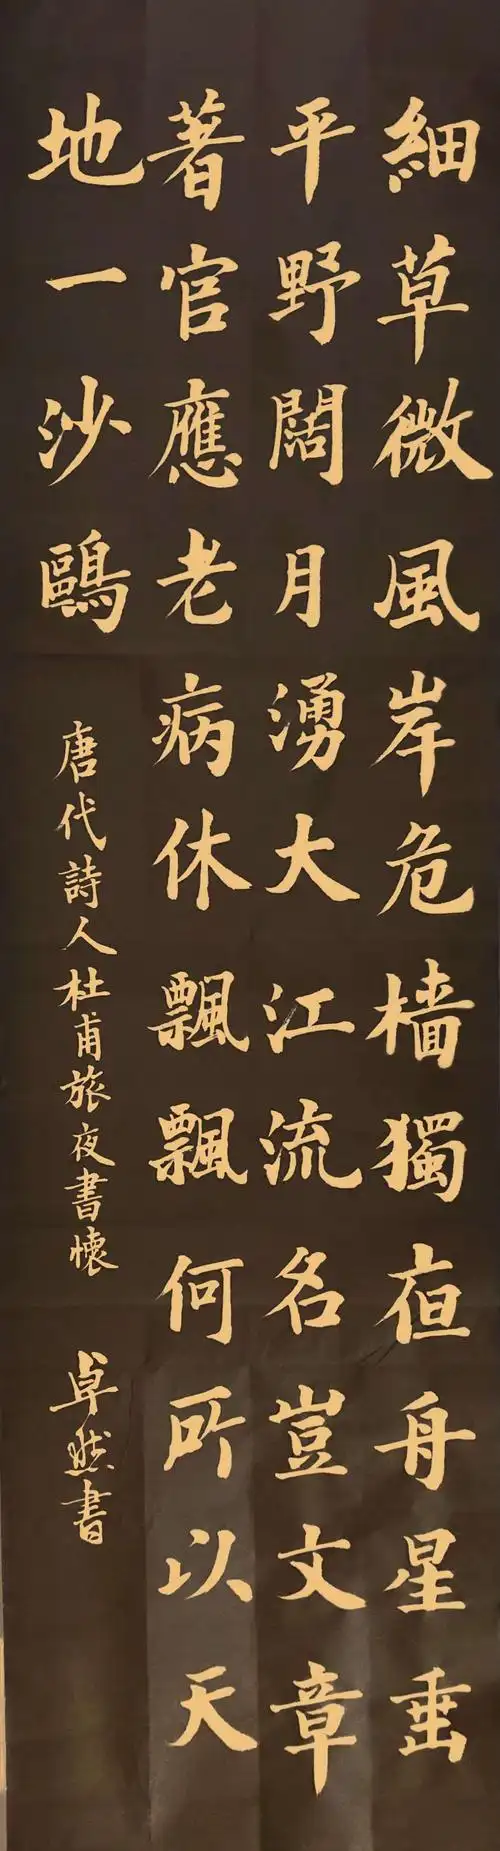 細草微風岸危檣獨夜舟星垂
平野闊月湧大江流名豈文章
著官應老病休飄飄何所以天
地一沙鷗
唐代詩人杜甫旅夜書懷
卓然書